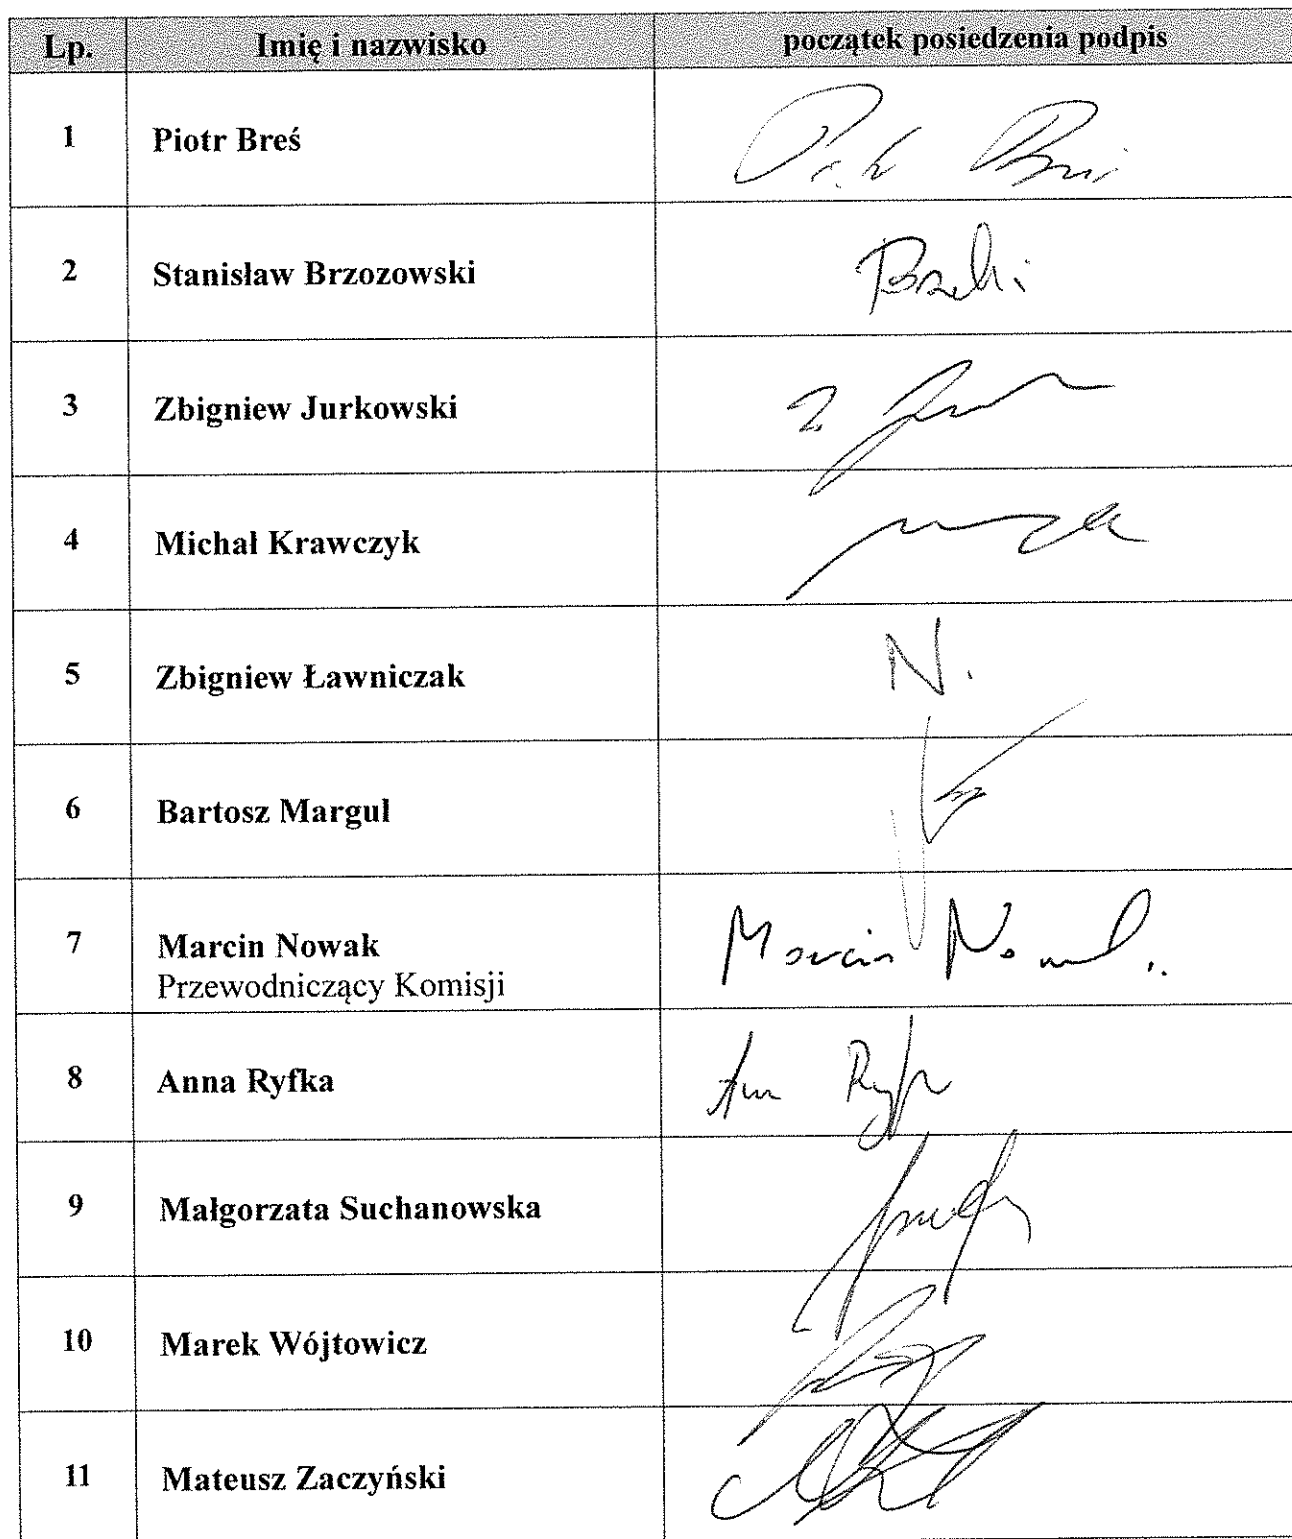 Lp. Imię i nazwisko początek posiedzenia podpis
1 Piotr Breś
2 Stanisław Brzozowski
3 Zbigniew Jurkowski
4 Michał Krawczyk
5 Zbigniew Ławniczak N.
6 Bartosz Margul
7 Marcin Nowak Marcin Nowak
Przewodniczący Komisji
8 Anna Ryfka
9 Małgorzata Suchanowska
10 Marek Wójtowicz
11 Mateusz Zaczyński